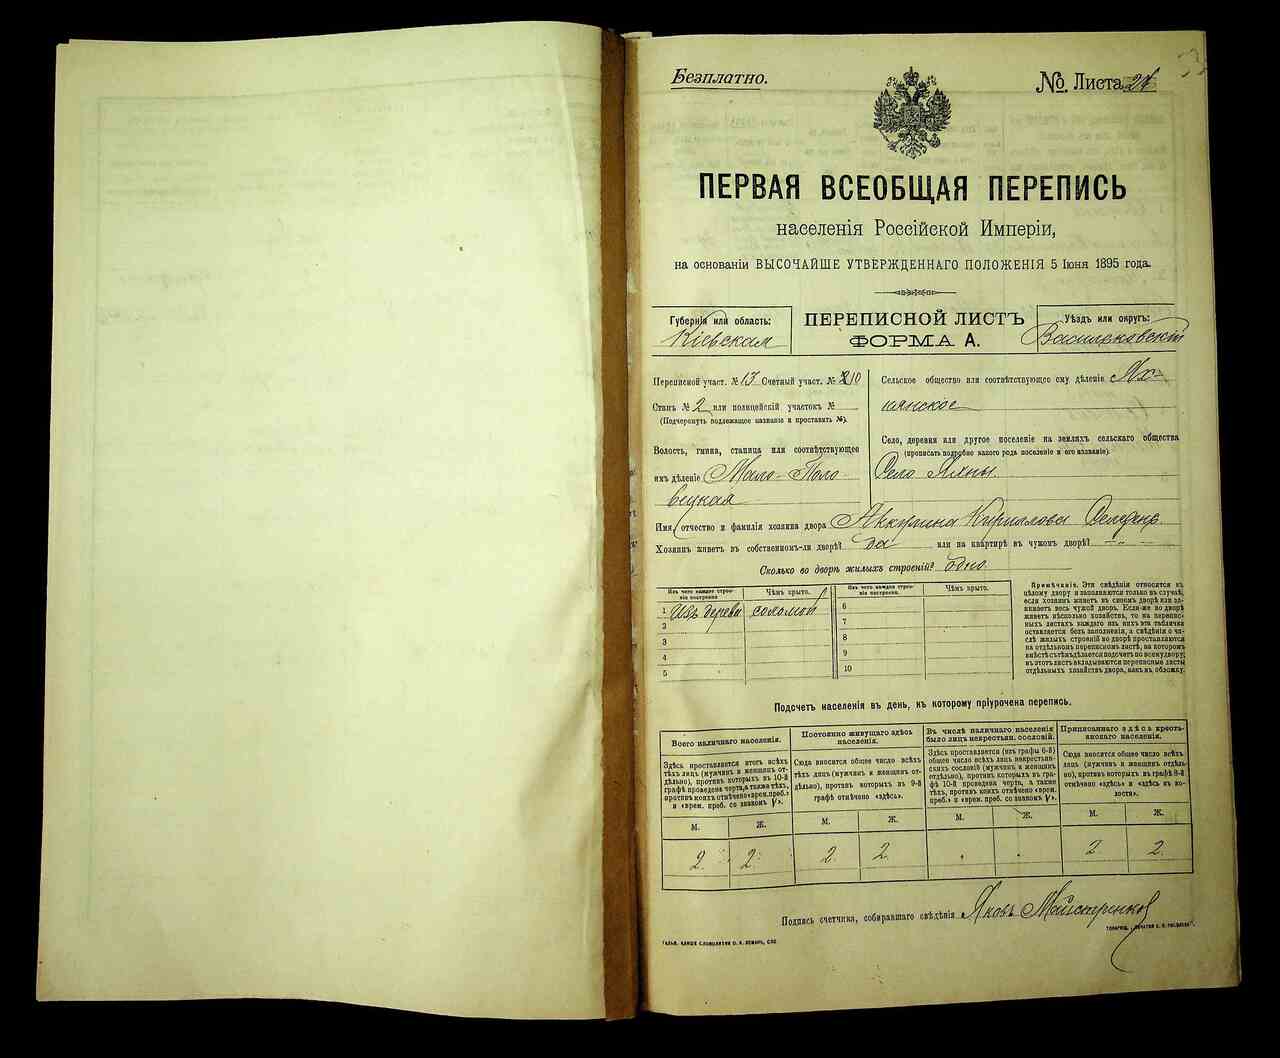 Безплатно.
№ Листа
ПЕРВАЯ ВСЕОБЩАЯ ПЕРЕПИСЬ
населенія Россійской Имперіи,
на основаніи ВЫСОЧАЙШЕ УТВЕРЖДЕННАГО ПОЛОЖЕНІЯ 5 Іюня 1895 года.
Губернія или область:
Кіевская
ПЕРЕПИСНОЙ ЛИСТЪ
ФОРМА А.
Уѣздъ или округъ:
Васильковскій
Переписной участ. № 13 Счетный участ. № 10
Станъ № 2 или полицейскій участокъ №
(Подчеркнуть подлежащее названіе и проставить №).
Волость, гмина, станица или соотвѣтствующее
имъ дѣленіе Мало-Поло-
вецкая
Сельское общество или соотвѣтствующее ему дѣленіе Ях-
нянское
Село, деревня или другое поселеніе на земляхъ сельскаго общества
(прописать подробно какого рода поселеніе и его названіе).
Село Яхны.
Имя, отчество и фамилія хозяина двора Аккулина Кириллова
Хозяинъ живетъ въ собственномъ-ли дворѣ? да или на квартирѣ въ чужомъ дворѣ?
Сколько во дворѣ жилыхъ строеній? одно
Изъ чего каждое строе-
ніе построено.
Чѣмъ крыто.
1 Изъ дерева соломой
2
3
4
5
Изъ чего каждое строе-
ніе построено.
Чѣмъ крыто.
6
7
8
9
10
Примѣчаніе. Эти свѣдѣнія относятся къ
цѣлому двору и заполняются только въ случаѣ,
если хозяинъ живетъ въ своемъ дворѣ или за-
нимаетъ весь чужой дворъ. Если-же во дворѣ
живетъ нѣсколько хозяйствъ, то на перепис-
ныхъ листахъ каждаго изъ нихъ эта табличка
оставляется безъ заполненія, а свѣдѣнія о чи-
слѣ жилыхъ строеній во дворѣ проставляются
на отдѣльномъ переписномъ листѣ, на которомъ
вмѣстѣ съ тѣмъ дѣлается подсчетъ по всему двору;
въ этотъ листъ вкладываются переписные листы
отдѣльныхъ хозяйствъ двора, какъ въ обложку.
Подсчетъ населенія въ день, къ которому пріурочена перепись.
Всего наличнаго населенія.
Здѣсь проставляется итогъ всѣхъ
тѣхъ лицъ (мужчинъ и женщинъ от-
дѣльно), противъ которыхъ въ 10-й
графѣ проведена черта, а также тѣхъ,
противъ коихъ отмѣчено «врем. преб.»
и «врем. преб. со знакомъ V».
М. Ж.
2. 2.
Постоянно живущаго здѣсь
населенія.
Сюда вносится общее число всѣхъ
тѣхъ лицъ (мужчинъ и женщинъ от-
дѣльно), противъ которыхъ въ 9-й
графѣ отмѣчено «здѣсь».
М. Ж.
2. 2.
Въ числѣ наличнаго населенія
было лицъ некрестьян. сословій.
Здѣсь проставляется (изъ графы 6-й)
общее число всѣхъ лицъ некрестьян-
скихъ сословій (мужчинъ и женщинъ
отдѣльно), противъ которыхъ въ гра-
фѣ 10-й проведена черта, а также
тѣхъ, противъ коихъ отмѣчено «врем.
преб.» и «врем. преб. со знакомъ V».
М. Ж.
Приписаннаго здѣсь кресть-
янскаго населенія.
Сюда вносится общее число всѣхъ
лицъ (мужчинъ и женщинъ отдѣль-
но), противъ которыхъ въ графѣ 8-й
отмѣчено «здѣсь» и «здѣсь въ во-
лости».
М. Ж.
2 2.
Подпись счетчика, собиравшаго свѣдѣнія Яковъ Майстренко